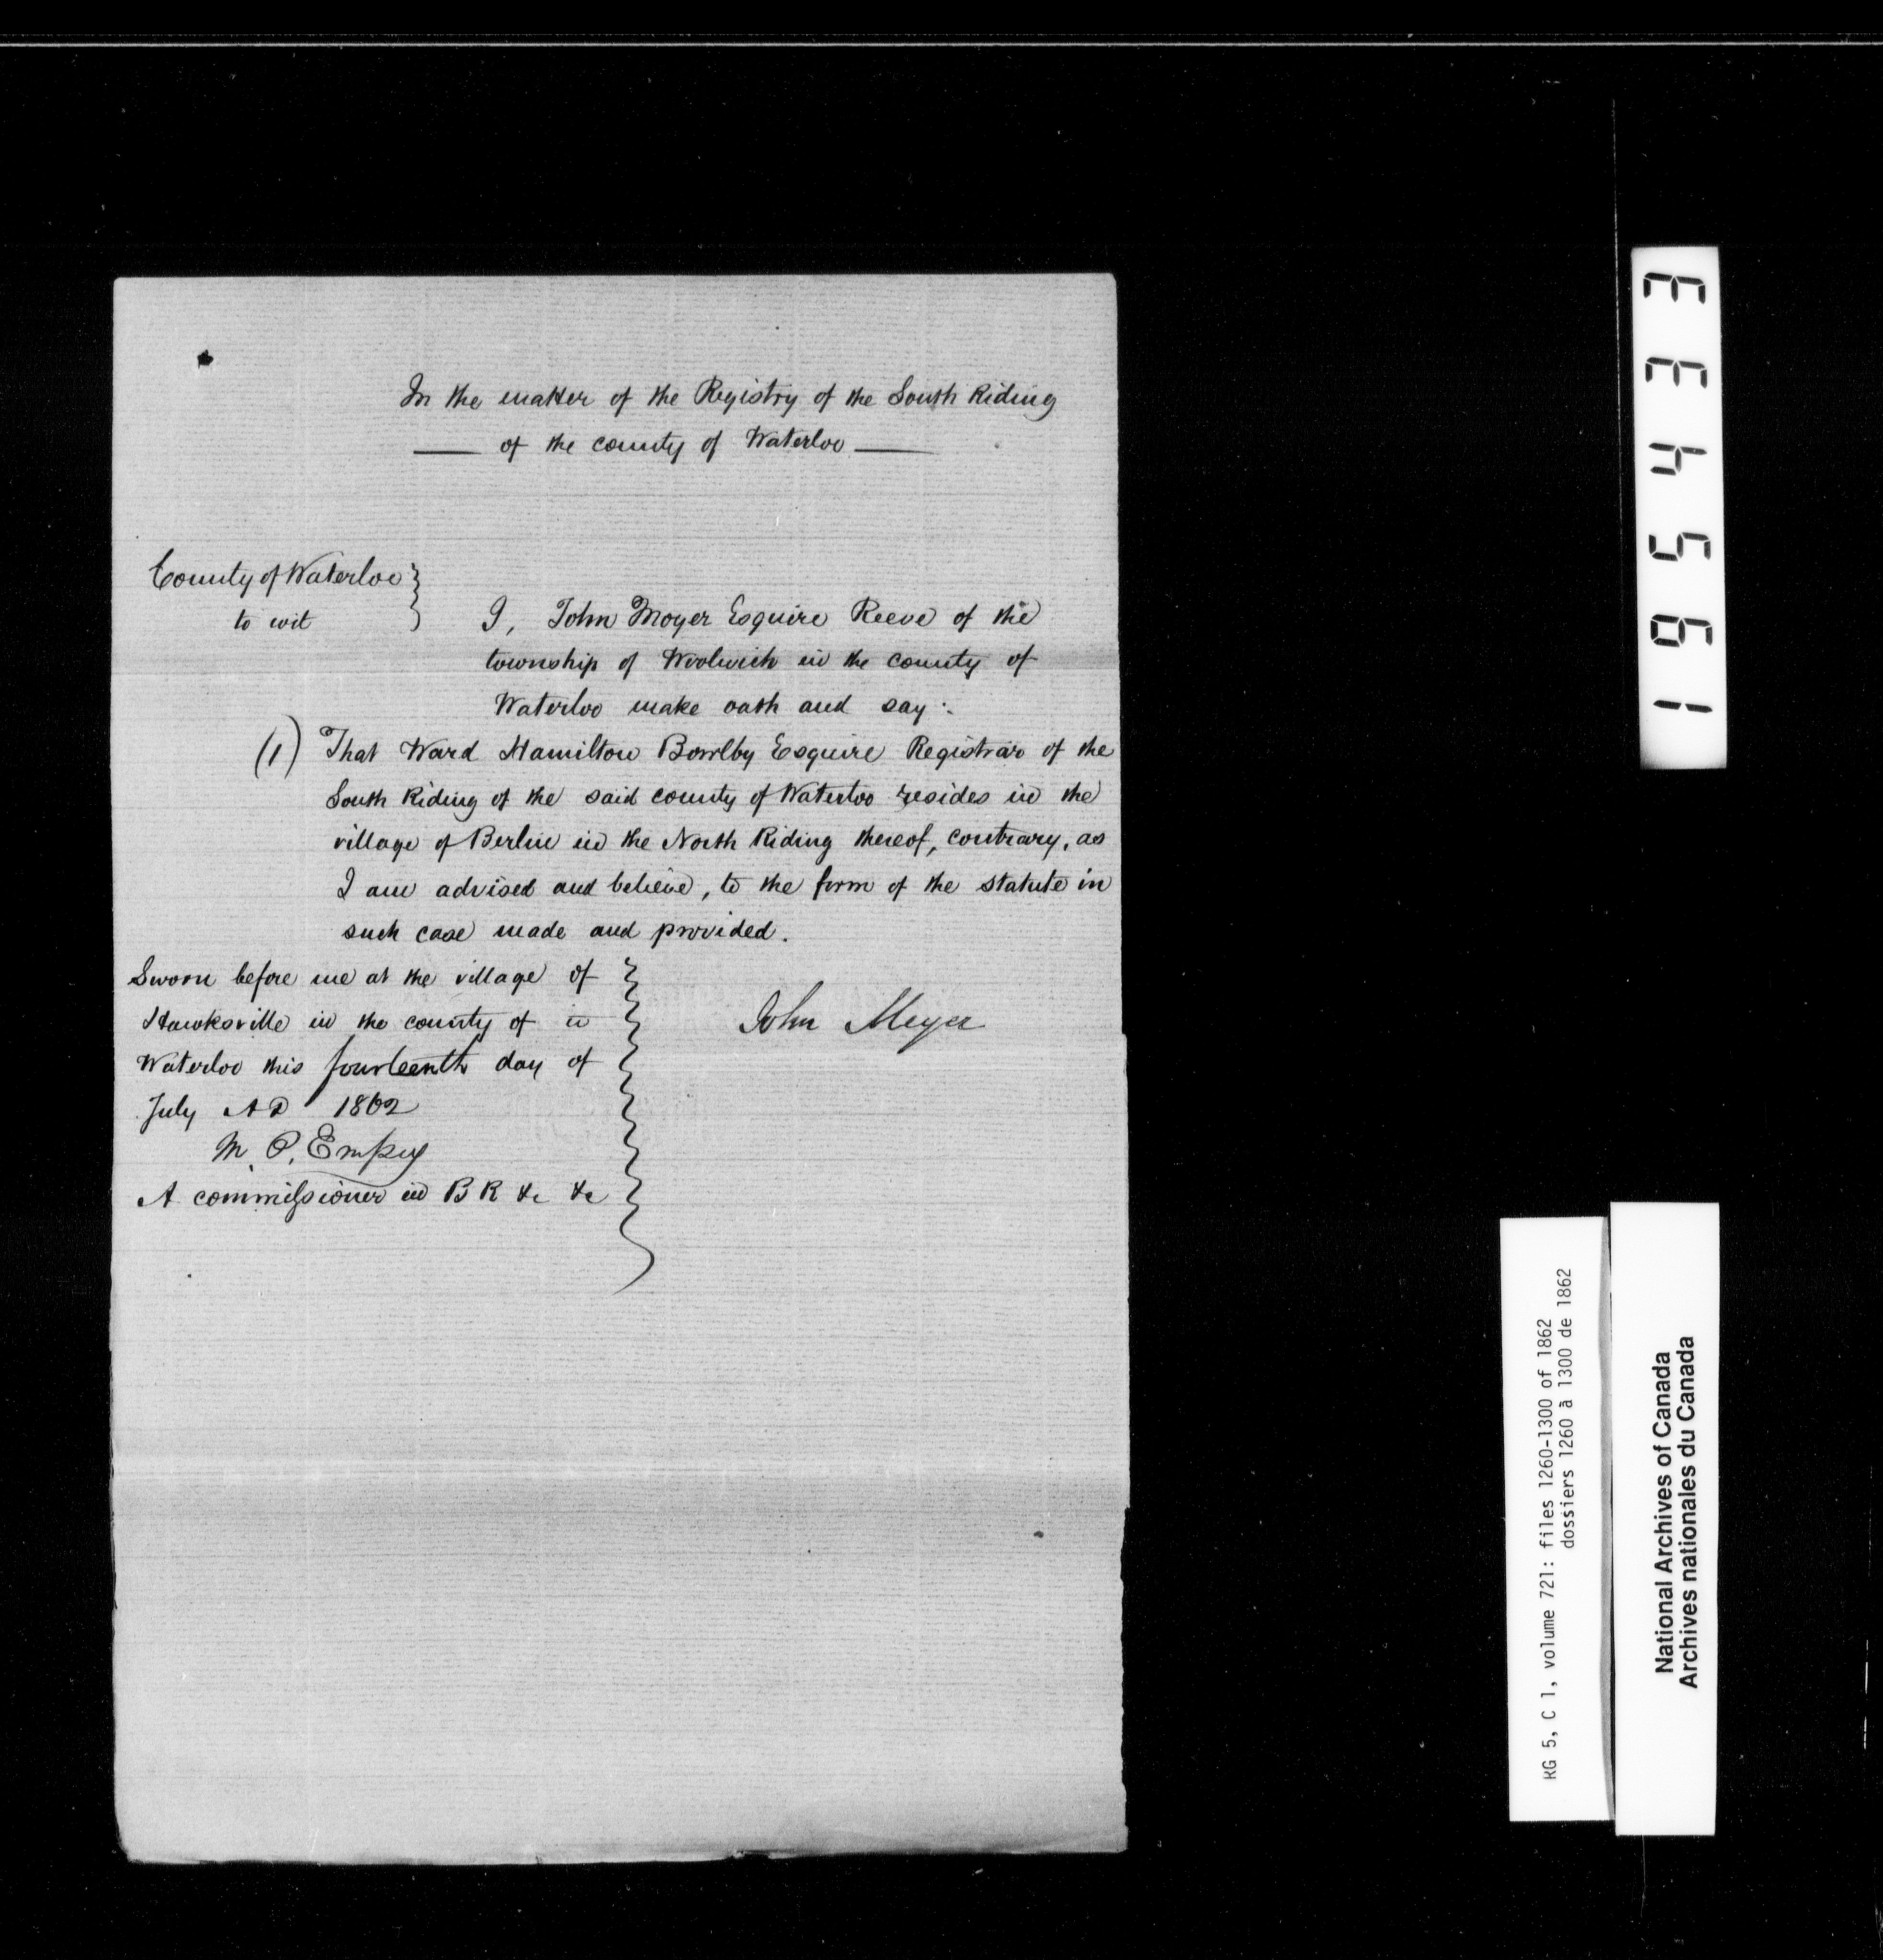 In the matter of the Registry of the South Riding
of the county of Waterloo
County of Waterloo
to wit
I, John Moyer Esquire Reeve of the
township of Woolwich in the county of
Waterloo make oath and say:
(1) That Ward Hamilton Bowlby Esquire Registrar of the
South Riding of the said county of Waterloo resides in the
village of Berlin in the North Riding thereof, contrary, as
I am advised and believe, to the form of the statute in
such case made and provided.
Sworn before me at the village of
Hawksville in the county of
Waterloo this fourteenth day of
July AD 1862
M. P. Empey
A commissioner in B R &c &c
John Meyer
195433
RG 5, C 1, volume 721: files 1260-1300 of 1862
dossiers 1260 à 1300 de 1862
National Archives of Canada
Archives nationales du Canada